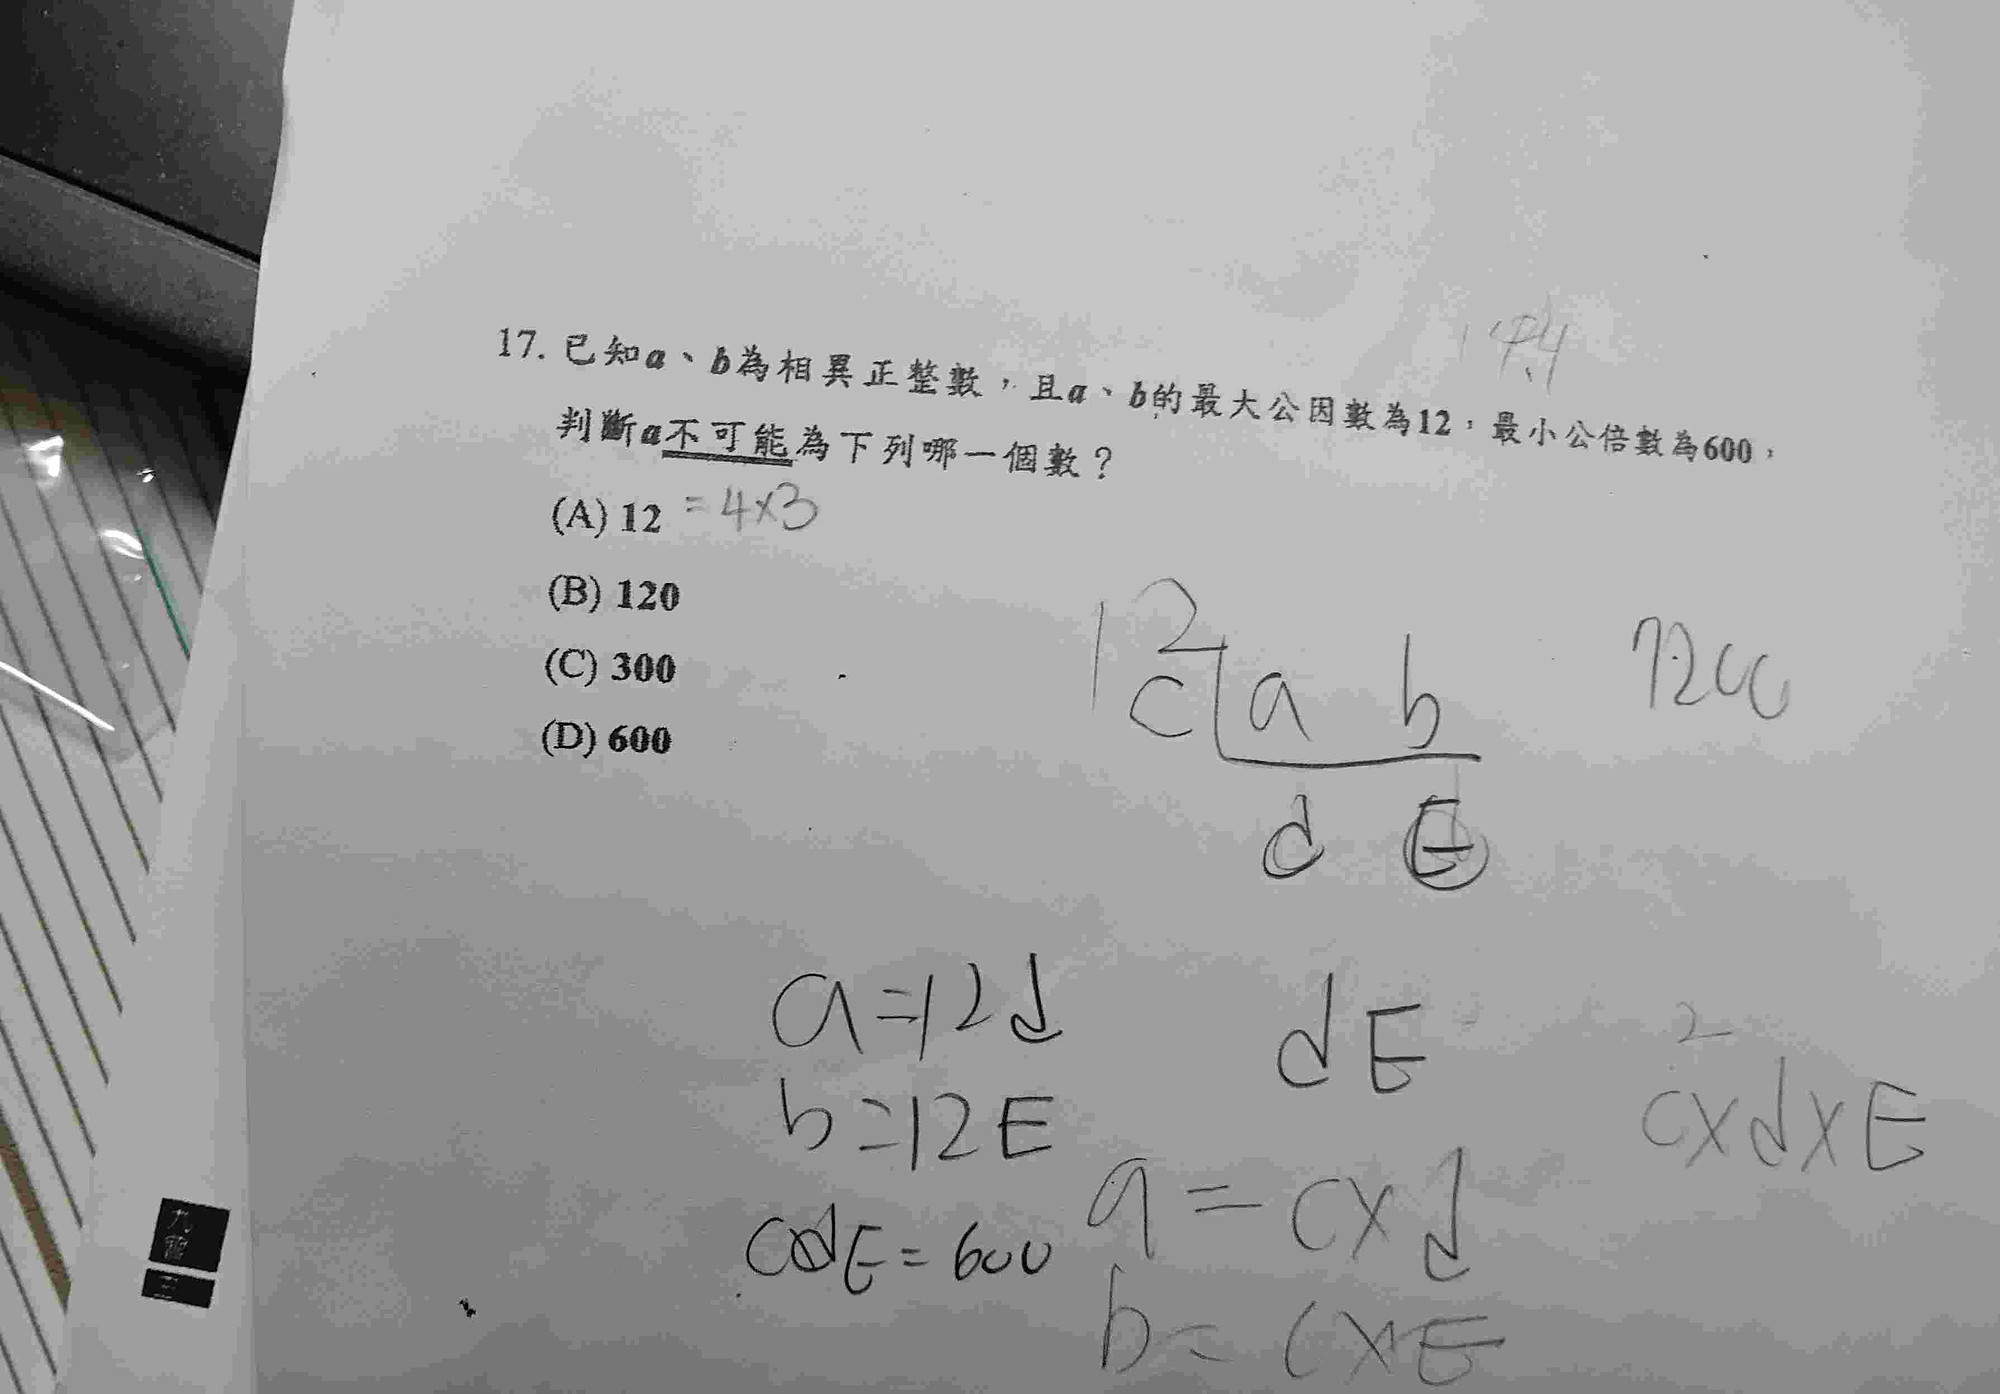 17. 已知a、b為相異正整數，且a、b的最大公因數為12，最小公倍數為600，
判斷a不可能為下列哪一個數？
(A) 12 = 4×3
(B) 120
(C) 300
(D) 600
12
c a b
7200
d E
a=12d
b=12E
cdE=600
dE
a=c×d
b=c×E
2
c×d×E
九
三